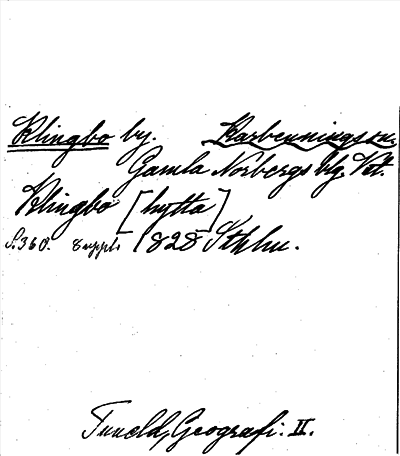 Klingbo by. Karbennings sn.
Gamla Norbergs bg. Vstm.
Klingbo [hytta]
S. 360. Suppl. 1828 Sthlm.
Tuneld, Geografi. II.